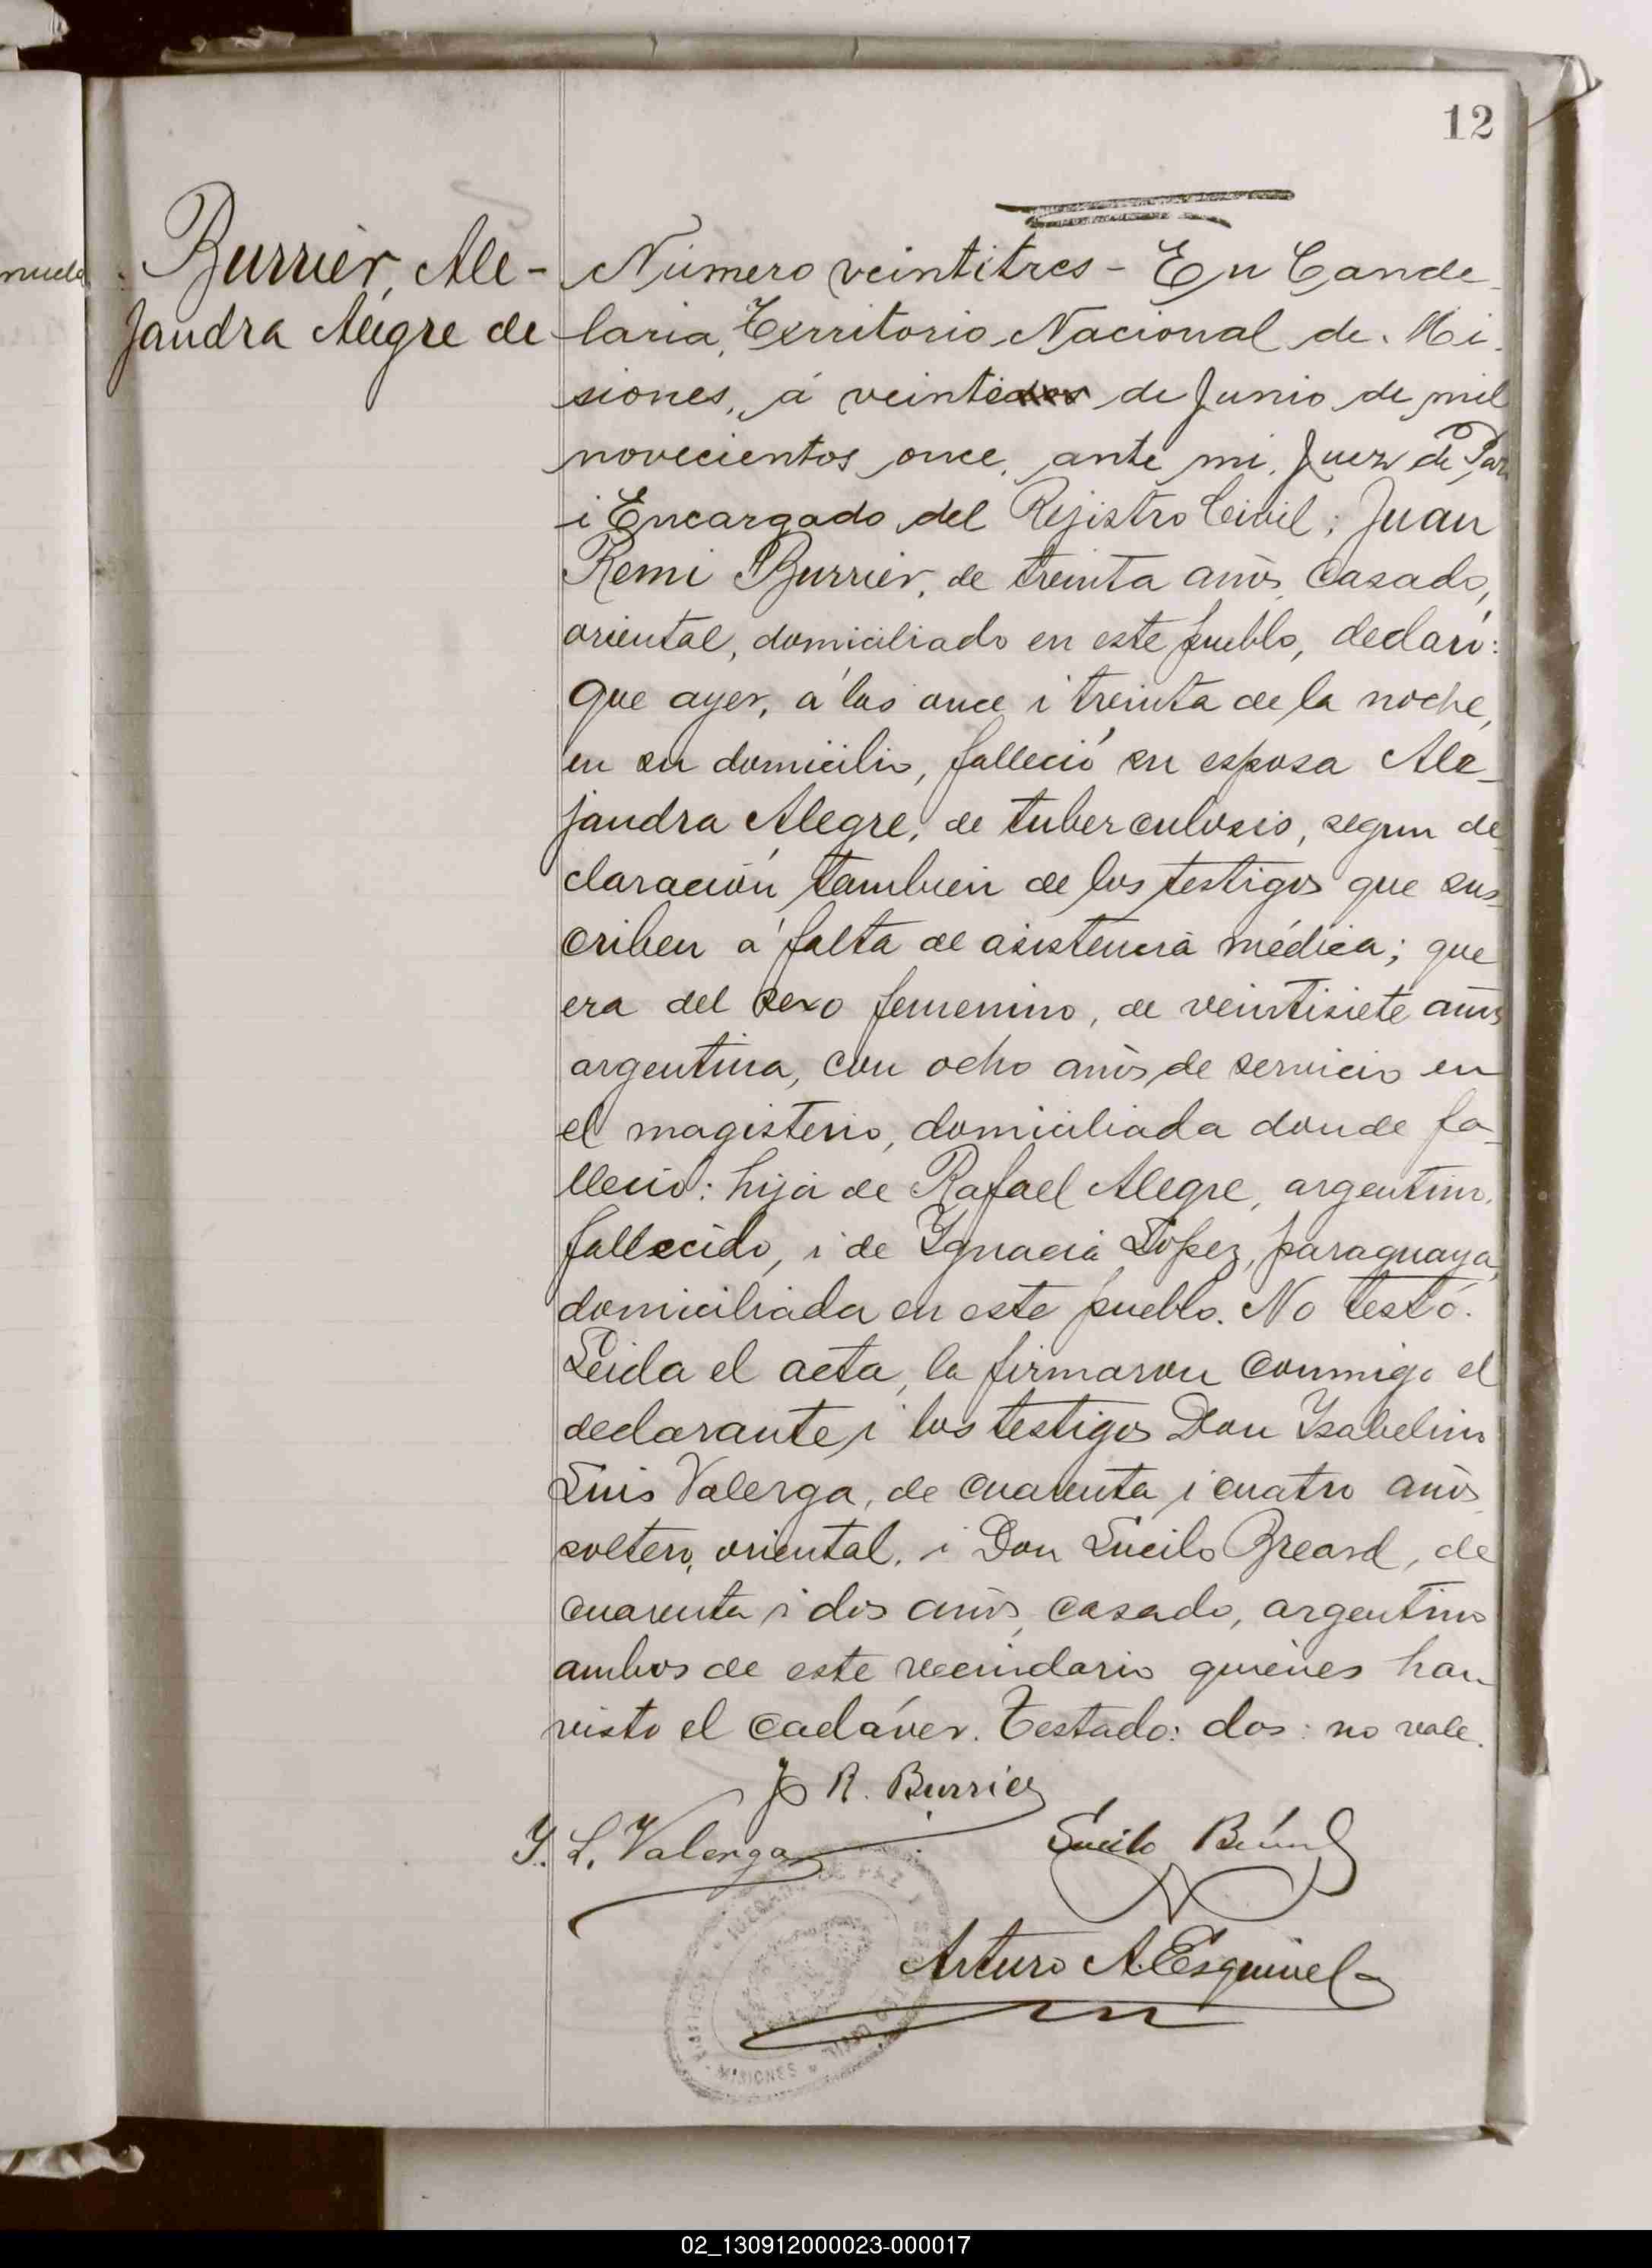 12
Burrier, Ale-
jandra Alegre de
Número veintitres - En Cande-
laria, Territorio Nacional de Mi-
siones, á veintidos de Junio de mil
novecientos once, ante mi, Juez de Paz
i Encargado del Rejistro Civil; Juan
Remi Burrier, de treinta años, casado,
oriental, domiciliado en este pueblo, declaró:
que ayer, á las once i treinta de la noche,
en su domicilio, falleció su esposa Ale-
jandra Alegre, de tuberculosis, segun de-
claración tambien de los testigos que sus-
criben á falta de asistencia médica; que
era del sexo femenino, de veintisiete años
argentina, con ocho años de servicio en
el magisterio, domiciliada donde fa-
lleció: hija de Rafael Alegre, argentino,
fallecido, i de Ygnacia López, paraguaya,
domiciliada en este pueblo. No testó.
Leida el acta, la firmaron conmigo el
declarante i los testigos Don Ysabelino
Luis Valerga, de cuarenta i cuatro años,
soltero, oriental, i Don Lucilo Breard, de
cuarenta i dos años, casado, argentino
ambos de este vecindario quienes han
visto el cadáver. Testado: dos: no vale.
J R. Burrier
Y. L. Valerga
Lucilo
Arturo A. Esquivel
JUZGADO DE PAZ
MISIONES
02_130912000023-000017